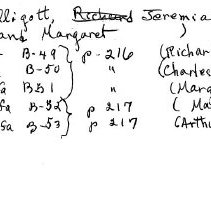 lligott, Richard Jeremia
and Margaret )
B-49 } p-216 (Richar
B-50 " (Charles
B51 " (Marg
fa B-52 } p 217 ( Ma
fa B-53 p 217 (Arthu